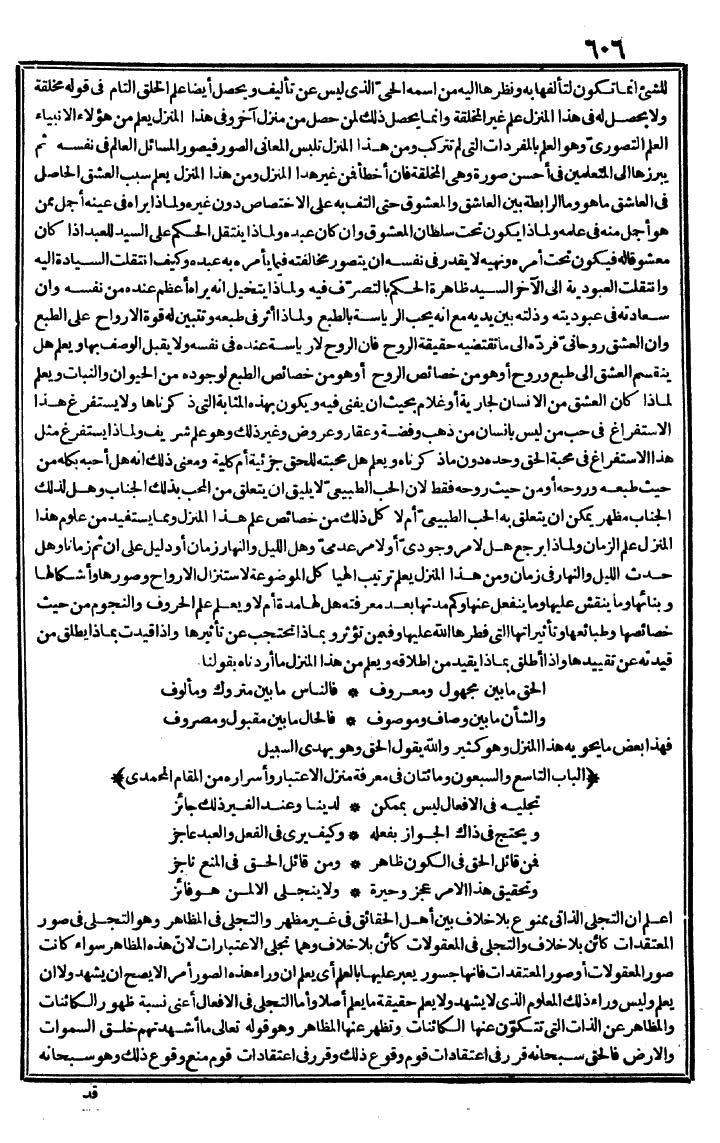 ٦٠٦
للشئ انما تكون لتألفها به ونظرها اليه من اسمه الحىّ الذى ليس عن تأليف ويحصل أيضا علم الخلق التام فى قوله مخلقة
ولا يحصل له فى هذا المنزل علم غير المخلقة وانما يحصل ذلك لمن حصل من منزل آخر وفى هذا المنزل يعلم من هؤلاء الانبياء
العلم التصورىّ وهو العلم بالمفردات التى لم تتركب ومن هذا المنزل تلبس المعانى الصور فيصور المسائل العالم فى نفسه ثم
يبرزها الى المتعلمين فى أحسن صورة وهى المخلقة فان أخطأ فن غير هذا المنزل ومن هذا المنزل يعلم سبب العشق الحاصل
فى العاشق ما هو وما الرابطة بين العاشق والمعشوق حتى التف به على الاختصاص دون غيره ولماذا يراه فى عينه أجل ممن
هو أجل منه فى علمه ولماذا يكون تحت سلطان المعشوق وان كان عبده ولماذا ينتقل الحكم على السيد للعبد اذا كان
معشوقا له فيكون تحت أمره ونهيه لا يقدر فى نفسه ان يتصور مخالفته فيما يأمره به عبده وكيف انتقلت السيادة اليه
وانتقلت العبودية الى الآخر السيد ظاهرة الحكم بالتصرّف فيه ولماذا يتخيل انه يراه أعظم عنده من نفسه وان
سعادته فى عبوديته وذلته بين يديه مع انه يحب الرياسة بالطبع ولماذا أثر فى طبعه وتتبين له قوة الارواح على الطبع
وان العشق روحانىّ فردّه الى ما تقتضيه حقيقة الروح فان الروح لا رياسة عنده فى نفسه ولا يقبل الوصف بها ويعلم هل
ينقسم العشق الى طبع وروح أو هو من خصائص الروح أو هو من خصائص الطبع لوجوده من الحيوان والنبات ويعلم
لماذا كان العشق من الانسان لجارية أو غلام بحيث ان يفنى فيه ويكون بهذه المثابة التى ذكرناها ولا يستفرغ هذا
الاستفراغ فى حب من ليس بانسان من ذهب وفضة وعقار وعروض وغير ذلك وهو علم شريف ولماذا يستفرغ مثل
هذا الاستفراغ فى محبة الحق وحده دون ما ذكرناه ويعلم هل محبته للحق جزئية أم كلية ومعنى ذلك انه هل أحبه بكله من
حيث طبعه وروحه أو من حيث روحه فقط لان الحب الطبيعىّ لا يليق ان يتعلق من المحب بذلك الجناب وهل لذلك
الجناب مظهر يمكن ان يتعلق به الحب الطبيعىّ أم لا كل ذلك من خصائص علم هذا المنزل ومما يستفيد من علوم هذا
المنزل علم الزمان ولماذا يرجع هل لامر وجودىّ أو لامر عدمىّ وهل الليل والنهار زمان أو دليل على ان ثم زمانا وهل
حدث الليل والنهار فى زمان ومن هذا المنزل يعلم ترتيب الهيا كل الموضوعة لاستنزال الارواح وصورها وأشكالها
وبنائها وما ينقش عليها وما ينفعل عنها وكم مدتها بعد معرفته هل لها مدة أم لا ويعلم علم الحروف والنجوم من حيث
خصائصها وطبائعها وتأثيراتها التى فطرها الله عليها وفيمن تؤثر وبماذا تحتجب عن تأثيرها واذا قيدت بماذا يطلق من
قيدته عن تقييدها واذا أطلق بماذا يقيد من اطلاقه ويعلم من هذا المنزل ما أردناه بقولنا
الحق ما بين مجهول ومعروف * فالناس ما بين متروك ومألوف
والشأن ما بين وصاف وموصوف * فالحال ما بين مقبول ومصروف
فهذا بعض ما يحويه هذا المنزل وهو كثير والله يقول الحق وهو يهدى السبيل
﴿الباب التاسع والسبعون ومائتان فى معرفة منزل الاعتبار وأسراره من المقام المحمدى﴾
تجليه فى الافعال ليس بممكن * لدينا وعند الغير ذلك جائز
ويحتج فى ذاك الجواز بفعله * وكيف يرى فى الفعل والعبد عاجز
فمن قائل الحق فى الكون ظاهر * ومن قائل الحق فى المنع ناجز
وتحقيق هذا الامر عجز وحيرة * ولا ينجلى الا لمن هو فائز
اعلم ان التجلى الذاتى ممنوع بلا خلاف بين أهل الحقائق فى غير مظهر والتجلى فى المظاهر وهو التجلى فى صور
المعتقدات كائن بلا خلاف والتجلى فى المعقولات كائن بلا خلاف وهما تجلى الاعتبارات لانّ هذه المظاهر سواء كانت
صور المعقولات أو صور المعتقدات فانها جسور يعبر عليها بالعلم أى يعلم ان وراء هذه الصور أمر الا يصح ان يشهد ولا ان
يعلم وليس وراء ذلك المعلوم الذى لا يشهد ولا يعلم حقيقة ما يعلم أصلا وأما التجلى فى الافعال أعنى نسبة ظهور الكائنات
والمظاهر عن الذات التى تتكوّن عنها الكائنات وتظهر عنها المظاهر وهو قوله تعالى ما أشهدتهم خلق السموات
والارض فالحق سبحانه قرر فى اعتقادات قوم وقوع ذلك وقرر فى اعتقادات قوم منع وقوع ذلك وهو سبحانه
قد